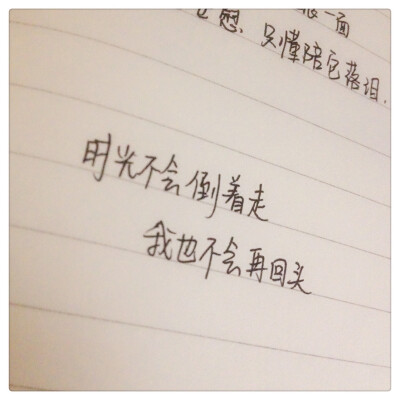 一面
慰，只懂陪它落泪.
时光不会倒着走
我也不会再回头